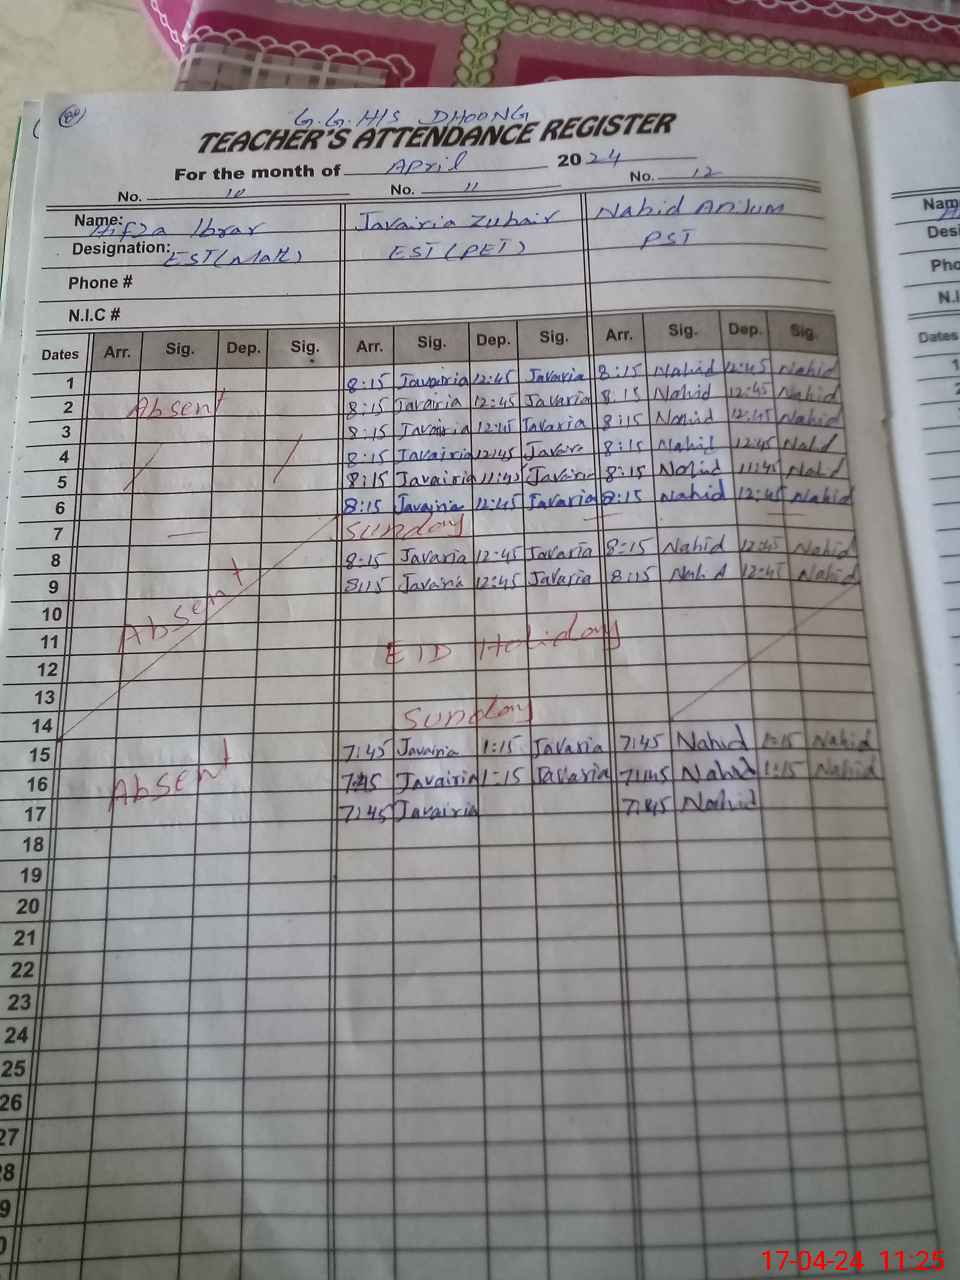 G.G.H/S DHOONG
TEACHER'S ATTENDANCE REGISTER
For the month of April 2024
No. 10 No. 11 No. 12
Name: Hifza Ibrar Javairia Zubair Nahid Anjum
Designation: EST(Math) EST(PET) PST
Phone #
N.I.C #
Dates Arr. Sig. Dep. Sig. Arr. Sig. Dep. Sig. Arr. Sig. Dep. Sig.
1 8:15 Javairia 12:45 Javaria 8:15 Nahid 12:45 Nahid
2 Absent 8:15 Javairia 12:45 Javaria 8:15 Nahid 12:45 Nahid
3 8:15 Javairia 12:45 Javaria 8:15 Nahid 12:45 Nahid
4 8:15 Javairia 12:45 Javaria 8:15 Nahid 12:45 Nahid
5 8:15 Javairia 11:45 Javaria 8:15 Nahid 11:45 Nahid
6 8:15 Javairia 12:45 Javaria 8:15 Nahid 12:45 Nahid
7 Sunday
8 8:15 Javaria 12:45 Javaria 8:15 Nahid 12:45 Nahid
9 8:15 Javairia 12:45 Javaria 8:15 Nahid 12:45 Nahid
10 Absent
11 EID Holiday
12
13
14 Sunday
15 7:45 Javairia 1:15 Javaria 7:45 Nahid 1:15 Nahid
16 Absent 7:45 Javairia 1:15 Javaria 7:45 Nahid 1:15 Nahid
17 7:45 Javairia 7:45 Nahid
18
19
20
21
22
23
24
25
26
27
28
9
0
Nam
Desi
Pho
N.I
Dates
17-04-24 11:25